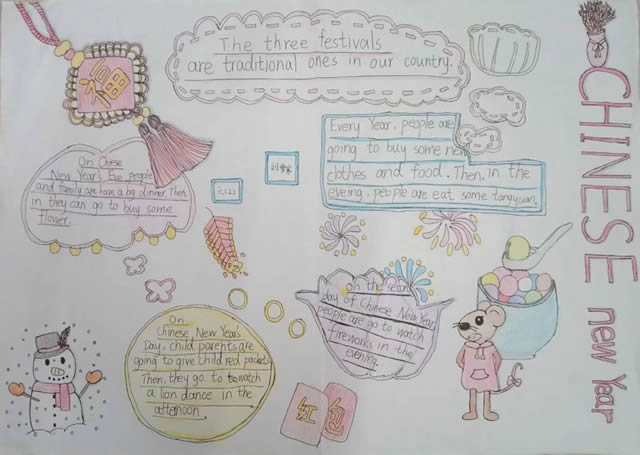 The three festivals
are traditional ones in our country.
CHINESE new Year
福
Every Year, people are
going to buy some new
clothes and food. Then, in the
eveing, people are eat some tangyuan.
On Chese
New Year's Eve, people
and family are have a big dinner. Then,
in they can go to buy some
flower.
六(2)
On
Chinese New Year's
Day, child parents are
going to give child red packets
Then, they go to watch
a lion dance in the
afternoon
on the secon
day of Chinese New Year
people are go to watch
fireworks in the
evening.
红包